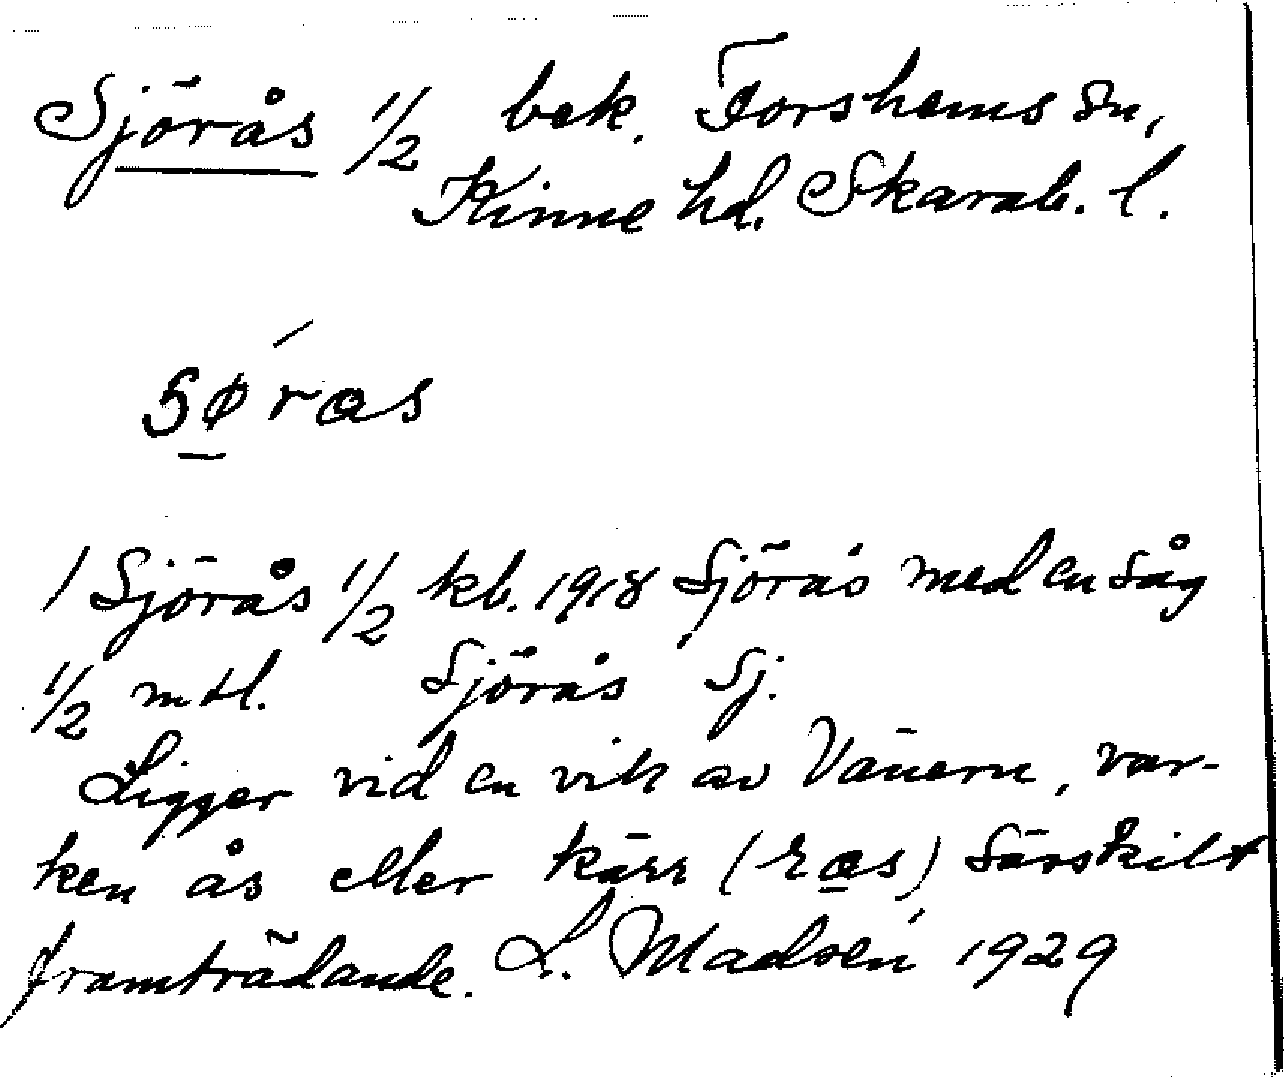 Sjörås 1/2 bek. Forshems sn,
Kinne hd. Skarab. l.
søras
1 Sjörås 1/2 kb. 1918 Sjörås med en såg
1/2 mtl. Sjörås Sj.
Ligger vid en vik av Vänern, var-
ken ås eller kärr (ras) särskilt
framträdande. L. Madsén 1929